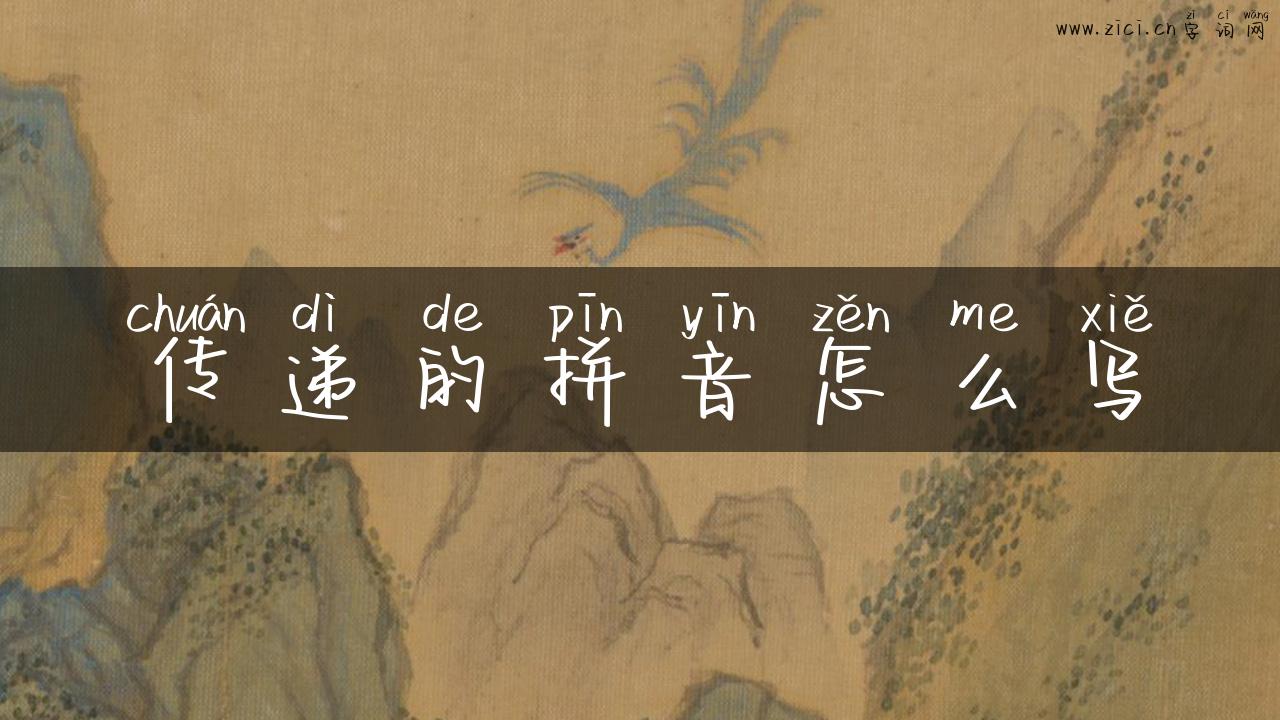 zì cí wǎng
www.zici.cn字词网
chuán dì de pīn yīn zěn me xiě
传递的拼音怎么写